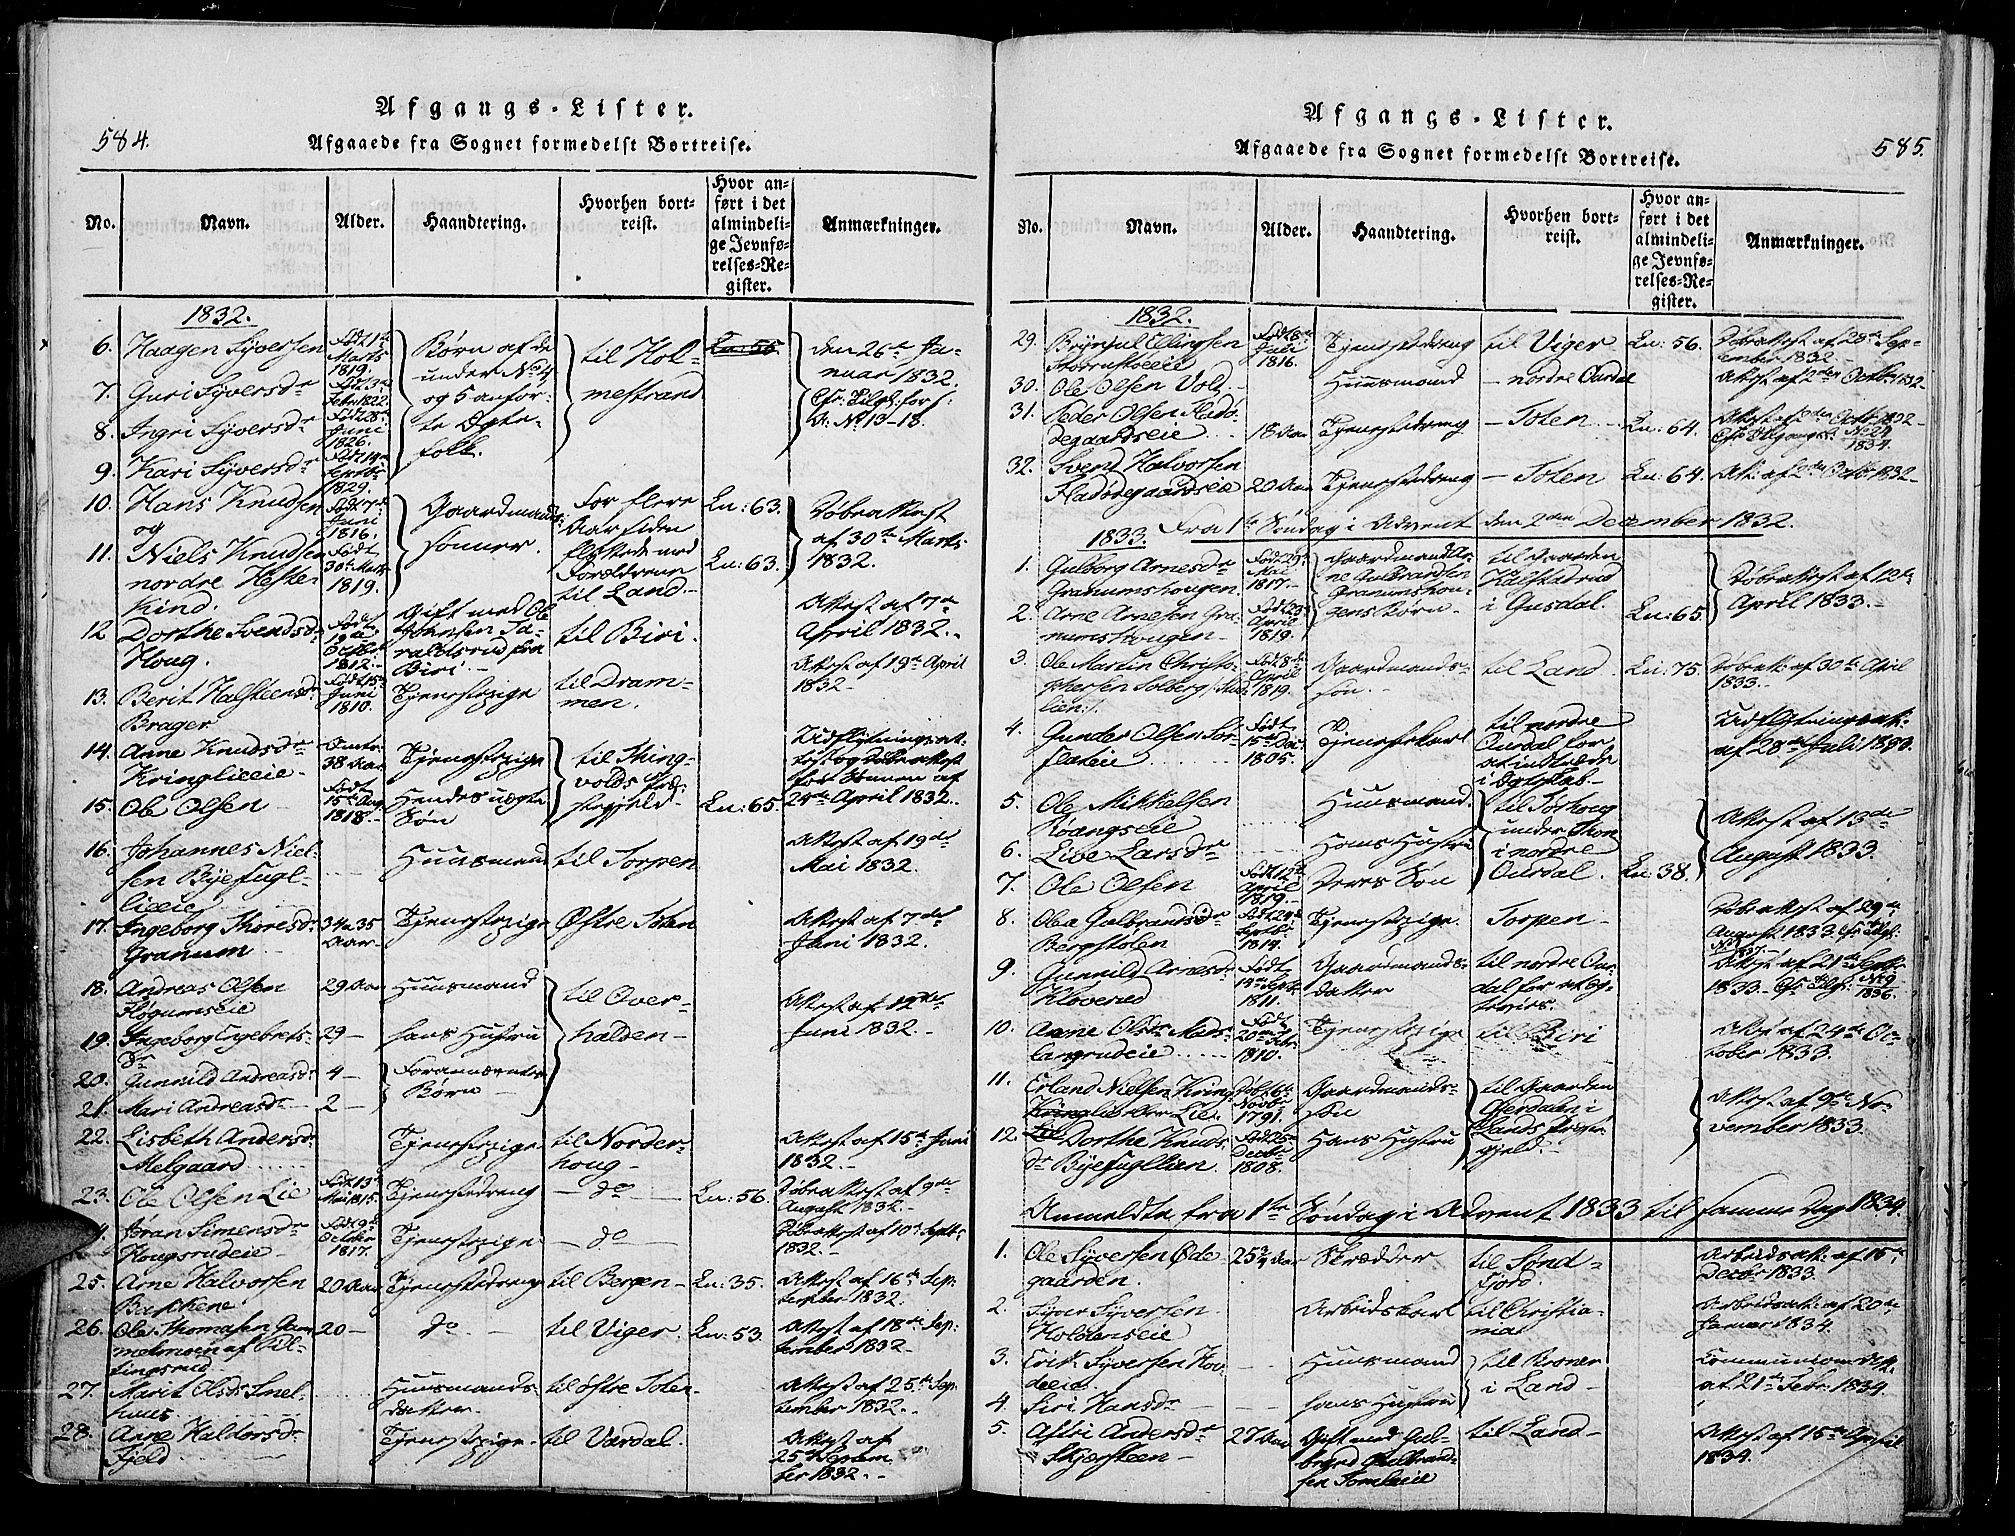 584.
Afgangs-Lister.
Afgaaede fra Sognet formedelst Bortreise.
No. Navn. Alder. Haandtering. Hvorhen bortreist. Hvor anført i det almindelige Jevnførelses-Register. Anmærkninger.
1832.
6. Haagen Syversen Født 1ste Marts 1819. Børn af de under No 4 og 5 anførte Ægtefolk. til Holmestrand Ln: 55 den 26de Januar 1832.
7. Guri Syversdr Født 3de Febr: 1822.
8. Ingri Syversdr Født 28de Juni 1826.
9. Kari Syversdr 1829.
10. Hans Knudsen og Født 7de Juni 1816. Gaardmands sønner. For flere Aar siden flyttede med Forældrene til Land. Ln: 63. Døbeattest af 30te Marts 1832.
11. Niels Knudsen nordre Hestekind. Født 30te Marts 1819. Ln: 63.
12 Dorthe Svendsdr Houg. Født 19de Octbr 1812. Gift med Ole Johnsen fra Biri. til Biri. Attest af 7de April 1832.
13. Berit Halsteensdr Brager Født 15de Juni 1810. Tjenestepige til Drammen. Attest af 19de April 1832
14. Anne Knudsdr Kringlieeie Omtr: 38 Aar Tjenestepige til Thingvolds Præstegjeld Udflytningsattest og Døbeattest for Sønnen af 25de April 1832.
15. Ole Olsen Født 15de Aug: 1818. Hendes uægte Søn Ln: 65.
16. Johannes Nielsen Byefugllieeie Huusmand til Torpen Attest af 19de Mai 1832.
17. Ingeborg Thoresdr Granum 34 a 35 Aar Tjenestepige Østre Toten Attest af 7de Juni 1832.
18. Andreas Olsen Hogumseie 29 Aar Huusmand til Overhalden Attest af 12te Juni 1832.
19. Ingeborg Engebretsdr 29 hans Hustru
20. Gunnild Andreasdr 4 Forannævntes Børn
21. Mari Andreasdr 2
22. Lisbeth Andersdr Melgaard Tjenestepige til Norderhoug Attest af 15de Juni 1832.
23. Ole Olsen Lie Født 13de Mai 1815. Tjenestedreng do Ln: 56. Døbeattest af 9de August 1832.
Jøran Simensdr Hougsrudeie Født 9de October 1817. Tjenestepige do Døbeattest af 10de Septb: 1832.
25. Arne Halvorsen Bakkene 20 Aar Tjenestedreng til Bergen Ln: 35. Attest af 16de September 1832.
26. Ole Thomasen 20 do til Viger Ln: 53. Attest af 18de September 1832
27. Marit Olsdr Snelhuus. Huusmandsdatter. til østre Toten Attest af 25de September 1832.
28. Anne Haldorsdr Fjeld Tjenestepige til Vardal. Attest af 25de September 1832.
585.
Afgangs-Lister.
Afgaaede fra Sognet formedelst Bortreise.
No. Navn. Alder. Haandtering. Hvorhen bortreist. Hvor anført i det almindelige Jevnførelses-Register. Anmærkninger.
1832.
29. Juli 1816. Tjenestedreng til Viger Ln: 56. Døbeattest af 28de September 1832
30. Ole Olsen Vold Huusmand nordre Ourdal Attest af 2den Octbr: 1832
31. Peder Olsen Fladødegaardseie 18 Aar Tjenestedreng Toten Ln: 64. Attest af 2den Octbr 1832
32. Svend Halvorsen Fladødegaardseie 20 Aar Tjenestedreng Toten Ln: 64. Att: af 2den Octbr 1832
1833. Fra 1ste Søndag i Advent den 2den December 1832.
1. Gulborg Arnesdr Granumshougen Født 29de Mai 1817. Gaardmand Arne Gulbrandsen Granumshougens Børn til Gaarden Kalstadrud i Gusdal. Døbeattest af 12te April 1833.
2. Arne Arnesen Granumshougen Født 23de April 1819. Ln: 65.
3. Ole Martin Christophersen Solberg Født 8de April 1819. Gaardmandssøn. til Land Ln: 75. Døbeatt: af 30te April 1833.
4. Gunder Olsen Sørflateie Født 15de Dec: 1805. Tjenestekarl til nordre Ourdal for at indtræde i Ægteskab. Udflytningsatt: af 28de Juli 1833.
5. Ole Mikkelsen Røangseie Huusmand. under Thon i nordre Ourdal. Attest af 13de August 1833.
6. Live Larsdr Hans Hustru
7. Ole Olsen Født 12te April 1819. Deres Søn Ln: 38.
8. Olea Gulbrandsdr Bergstolen Født 24de Septbr 1814. Tjenestepige. Torpen Døbeattest af 29de August 1833
9. Gunnild Arnesdr Kloverud Født 19de Septb: 1811. Gaardmandsdatter til nordre Ourdal for at Attest af 21de Septbr 1833.
10. Anne Olsdr Madslangrudeie Født 20de Febr: 1810. Tjenestepige til Biri Att: af 24de October 1833.
11. Erland Nielsen Kringlie eller Lie. Døbt 6te Novbr 1791. Gaardmandssøn til Gaarden i Lands Præstegjeld. Attest af 9de November 1833.
12. Dorthe Knudsdr Byefugllien. Født 25de Decbr 1808. Hans Hustru
Anmeldte fra 1ste Søndag i Advent 1833 til samme Dag 1834.
1. Ole Syversen Ødegaarden. 25¾ Aar Skrædder til Søndfjord. Arbeidsatt: af 15de Decbr 1833.
2. Syver Syversen Holdenseie Arbeidskarl til Christiania Arbeidsatt: af 20de Januar 1834.
3. Erik Syversen Huusmand til i Land Communionsatt: af 21de Febr: 1834.
4. Siri Hansdr hans Hustru
5. Andersdr Skjersteen 27 Aar Gift med Gulbrand Gulbrandsen Tomleeie til Land Attest af 15de April 1834.